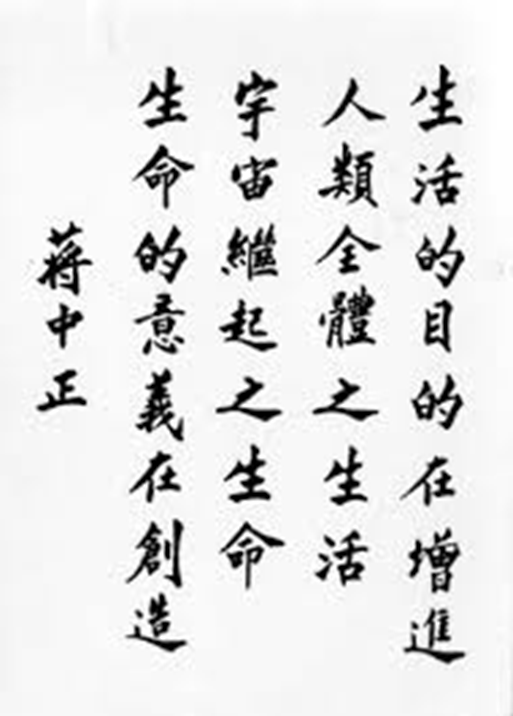 生活的目的在增進
人類全體之生活
宇宙繼起之生命
生命的意義在創造
蔣中正